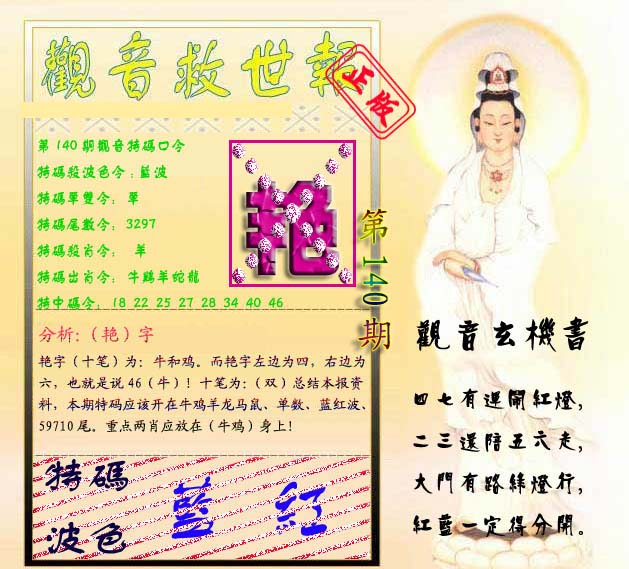 觀音救世報
正版
第140期觀音特碼口令
特碼殺波色令:藍波
特碼單雙令: 單
特碼尾數令: 3297
特碼殺肖令: 羊
特碼出肖令: 牛鷄羊蛇龍
特中碼令: 18 22 25 27 28 34 40 46
艳
第140期
分析:（艳）字
艳字（十笔）为：牛和鸡。而艳字左边为四，右边为
六，也就是说46（牛）！十笔为：（双）总结本报资
料，本期特码应该开在牛鸡羊龙马鼠、单数、蓝红波、
59710尾。重点两肖应放在（牛鸡）身上！
特碼
波色
藍 紅
觀音玄機書
四七有運開紅燈,
二三還陪五六走,
大門有路綠燈行,
紅藍一定得分開。